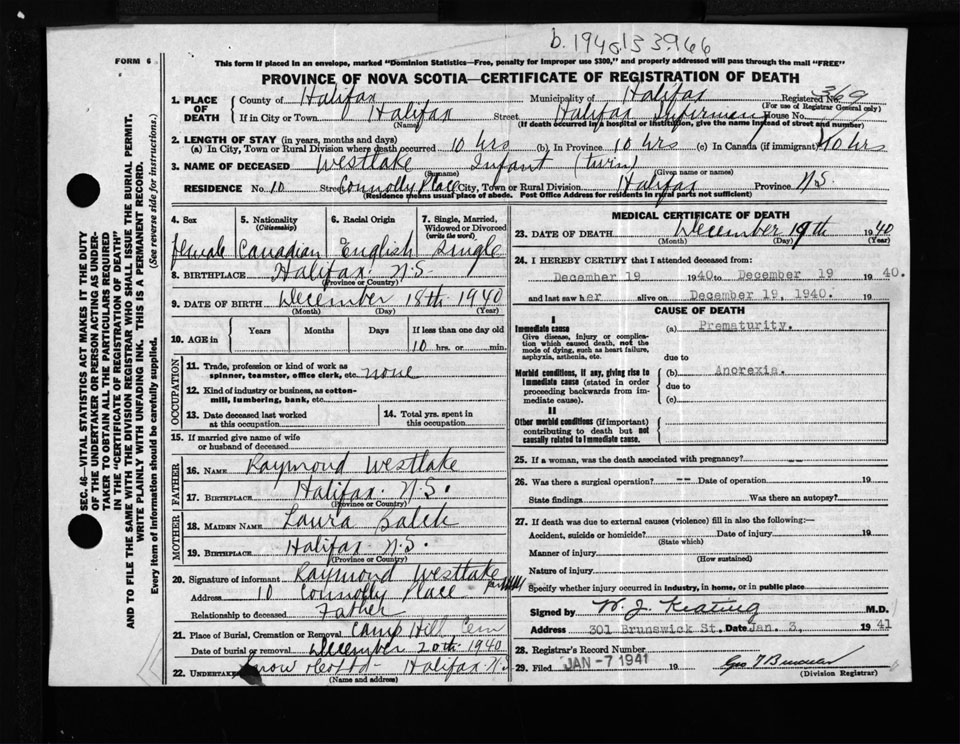 b. 1940. 133966
FORM 6
This form if placed in an envelope, marked "Dominion Statistics—Free, penalty for improper use $300," and properly addressed will pass through the mail "FREE"
PROVINCE OF NOVA SCOTIA—CERTIFICATE OF REGISTRATION OF DEATH
SEC. 46—VITAL STATISTICS ACT MAKES IT THE DUTY
OF THE UNDERTAKER OR PERSON ACTING AS UNDER-
TAKER TO OBTAIN ALL THE PARTICULARS REQUIRED
IN THE "CERTIFICATE OF REGISTRATION OF DEATH"
AND TO FILE THE SAME WITH THE DIVISION REGISTRAR WHO SHALL ISSUE THE BURIAL PERMIT.
WRITE PLAINLY WITH UNFADING INK. THIS IS A PERMANENT RECORD.
Every item of Information should be carefully supplied. (See reverse side for instructions.)
1. PLACE OF DEATH County of Halifax Municipality of Halifax Registered No. 369
(For use of Registrar General only)
If in City or Town Halifax Street Halifax Infirmary House No.
(Name) (If death occurred in a hospital or institution, give the name instead of street and number)
2. LENGTH OF STAY (in years, months and days)
(a) In City, Town or Rural Division where death occurred 10 hrs (b) In Province 10 hrs (c) In Canada (if immigrant) 10 hrs
3. NAME OF DECEASED Westlake Infant (twin)
(Surname) (Given name or names)
RESIDENCE No. 10 Street Connolly Place City, Town or Rural Division Halifax Province N.S.
(Residence means usual place of abode. Post Office Address for residents in rural parts not sufficient)
4. Sex 5. Nationality (Citizenship) 6. Racial Origin 7. Single, Married, Widowed or Divorced (write the word)
female Canadian English Single
8. BIRTHPLACE Halifax N.S.
(Province or Country)
9. DATE OF BIRTH December 18th 1940
(Month) (Day) (Year)
10. AGE in Years Months Days If less than one day old
10 hrs. or min.
OCCUPATION
11. Trade, profession or kind of work as
spinner, teamster, office clerk, etc. none
12. Kind of industry or business, as cotton-
mill, lumbering, bank, etc.
13. Date deceased last worked
at this occupation
14. Total yrs. spent in
this occupation
15. If married give name of wife
or husband of deceased
FATHER
16. NAME Raymond Westlake
17. BIRTHPLACE Halifax N.S.
(Province or Country)
MOTHER
18. MAIDEN NAME Laura Balch
19. BIRTHPLACE Halifax N.S.
(Province or Country)
20. Signature of informant Raymond Westlake
Address 10 Connolly Place
Relationship to deceased Father
21. Place of Burial, Cremation or Removal Camp Hill Cem
Date of burial or removal December 20th 1940
22. UNDERTAKER Snow Halifax N.S.
(Name and address)
MEDICAL CERTIFICATE OF DEATH
23. DATE OF DEATH December 19th 1940
(Month) (Day) (Year)
24. I HEREBY CERTIFY that I attended deceased from:
December 19 1940 to December 19 1940.
and last saw her alive on December 19, 1940. 19
CAUSE OF DEATH
I
Immediate cause
Give disease, injury or complica-
tion which caused death, not the
mode of dying, such as heart failure,
asphyxia, asthenia, etc.
(a) Prematurity.
due to
Morbid conditions, if any, giving rise to
Immediate cause (stated in order
proceeding backwards from im-
mediate cause).
(b) Anorexia.
due to
(c)
II
Other morbid conditions (if important)
contributing to death but not
causally related to immediate cause.
25. If a woman, was the death associated with pregnancy? --
26. Was there a surgical operation? -- Date of operation 19
State findings Was there an autopsy?
27. If death was due to external causes (violence) fill in also the following:—
Accident, suicide or homicide? Date of injury 19
(State which)
Manner of injury
(How sustained)
Nature of injury
Specify whether injury occurred in industry, in home, or in public place
Signed by W. J. Keating M.D.
Address 301 Brunswick St. Date Jan. 3, 1941
28. Registrar's Record Number
29. Filed JAN - 7 1941 19
(Division Registrar)